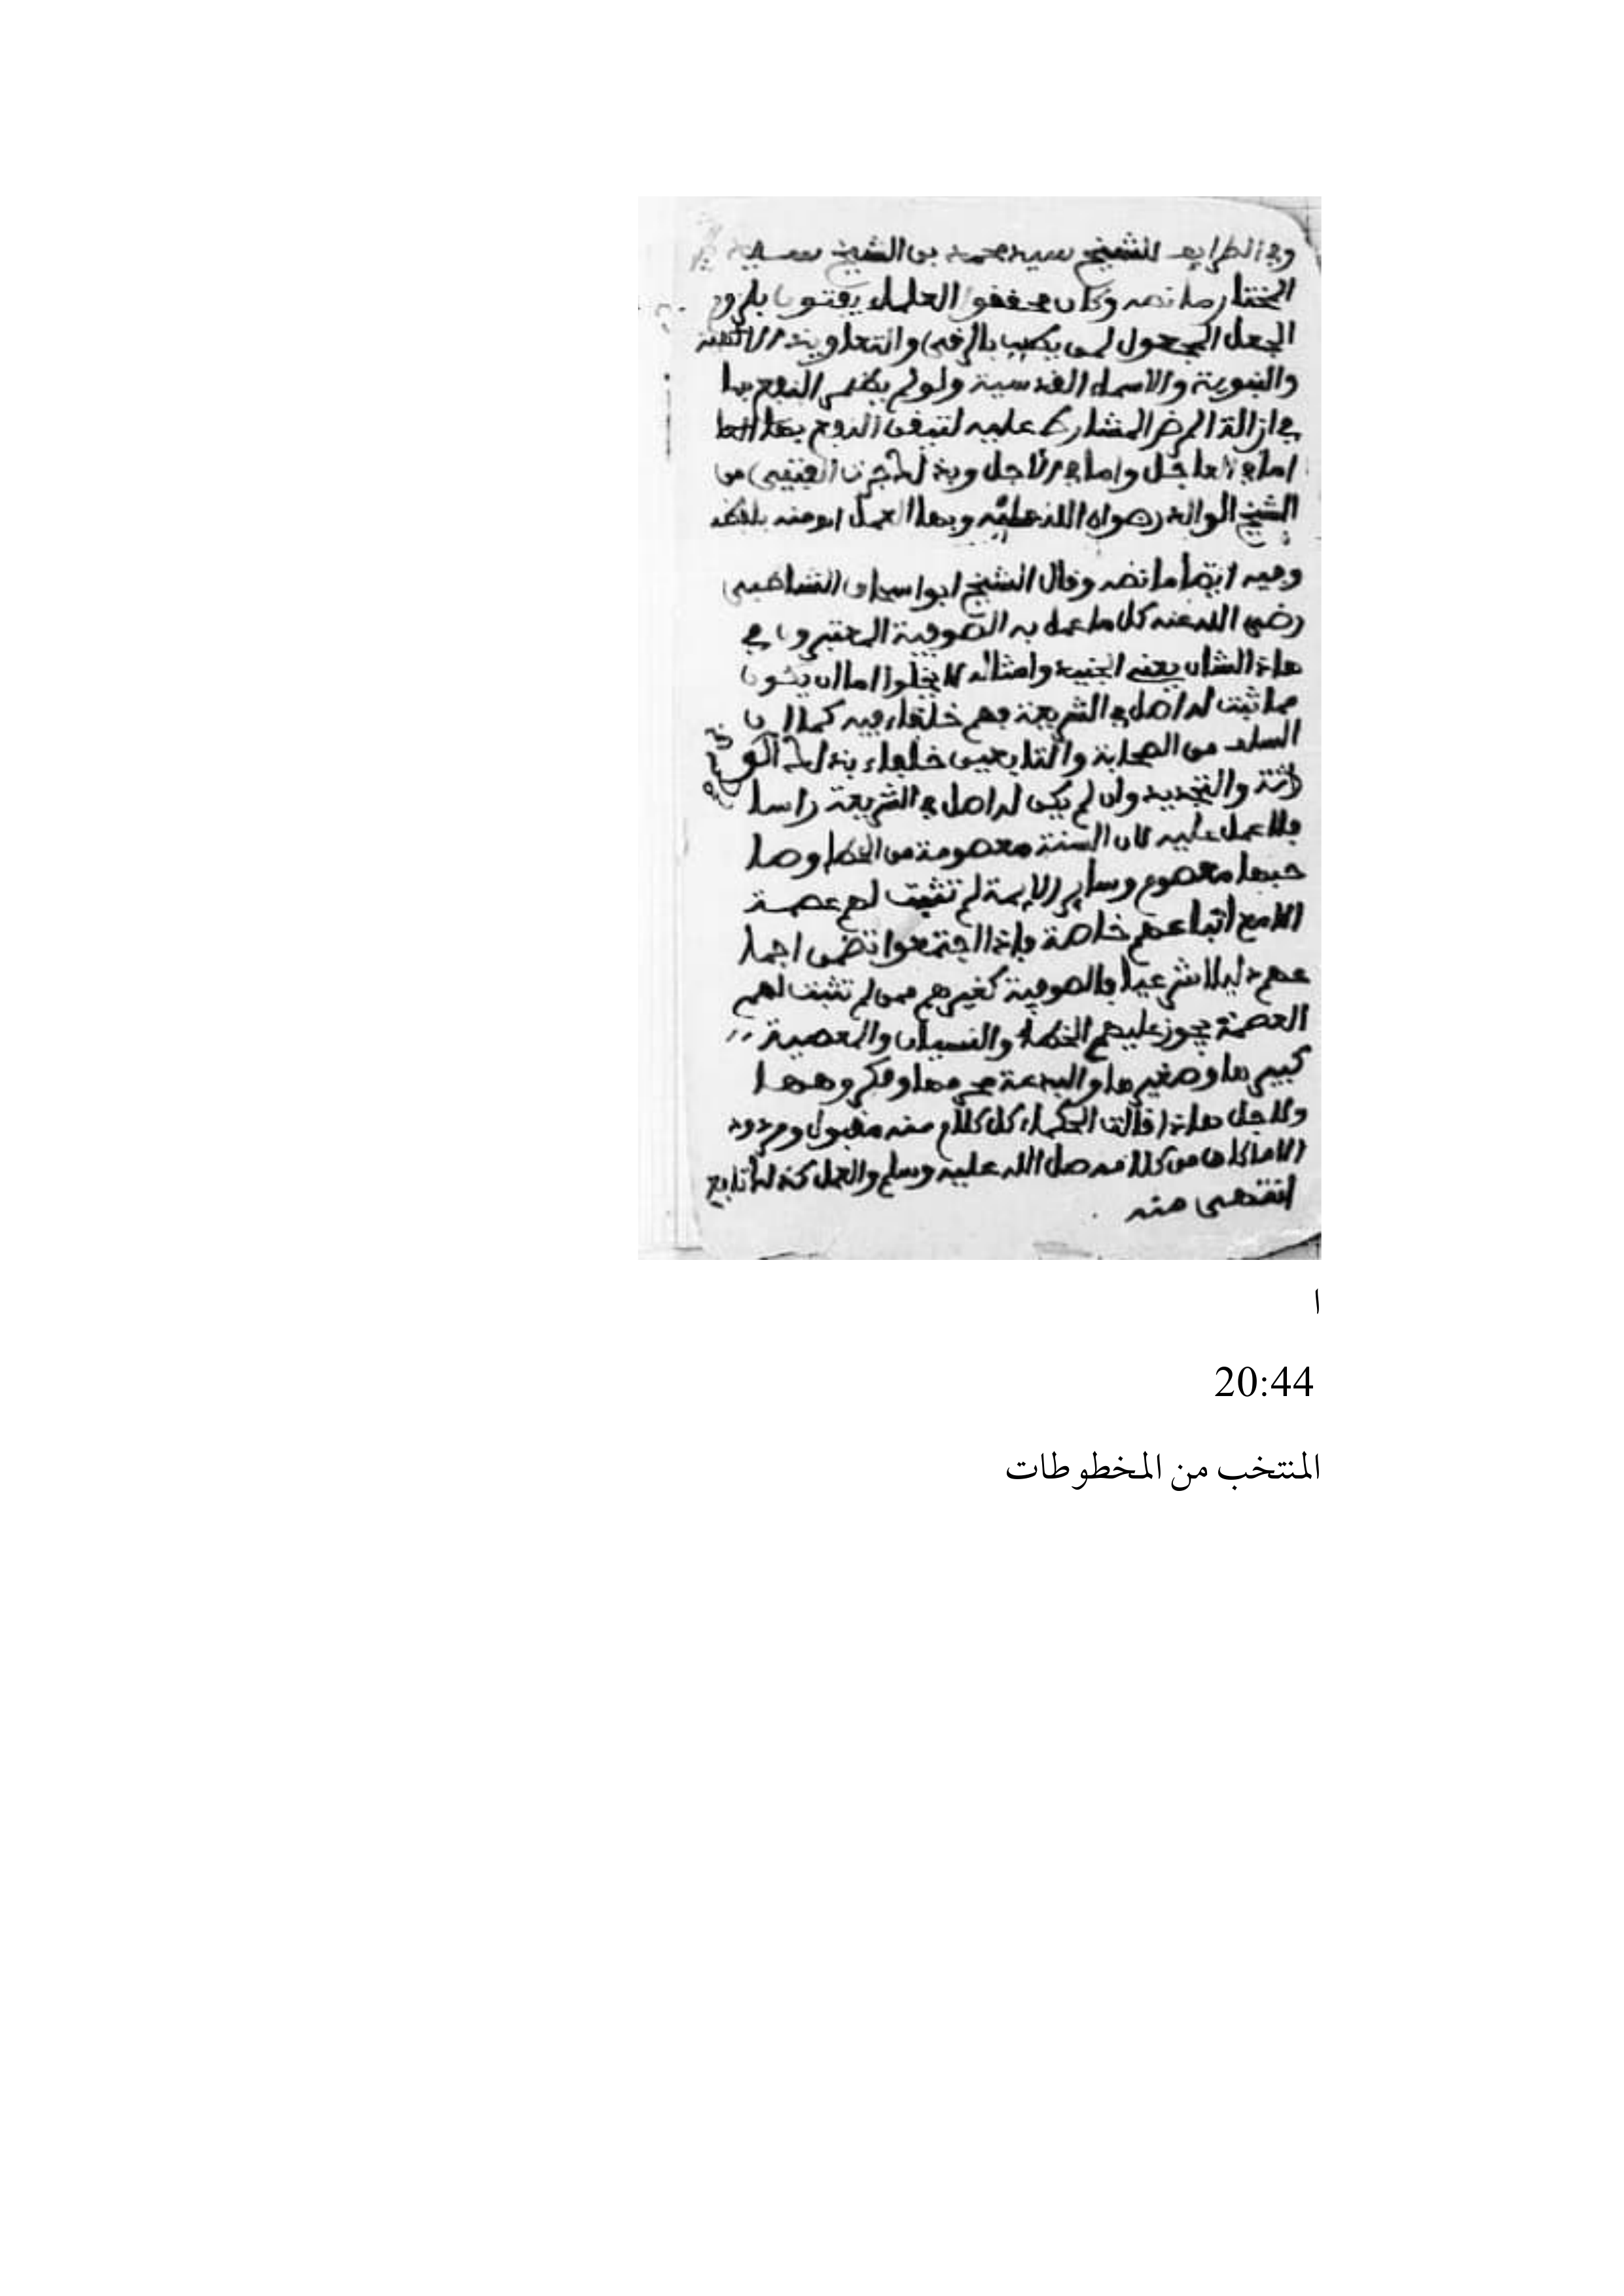 وفي الطرايف للشيخ سيد محمد بن الشيخ سيد
المختار ما نصه وكان محققوا العلماء يفتون بلزوم
الجعل المجعول لمن يطب بالرقى والتعاويذ
والنبوية والاسماء القدسية ولو لم يظهر النفع بها
في ازالة المرض المشارط عليه لتيقن النفع بها
اما في العاجل واما في الآجل وبذلك جرت الفتيى من
الشيخ الوالد رضوان الله عليه وبها العمل انتهى منه بلفظه
وفيه ايضا ما نصه وقال الشيخ ابو اسحاق الشاطبى
رضى الله عنه كل ما عمل به الصوفية المعتبرون في
هاذا الشان يعنى الجنيد وامثاله لا يخلوا اما ان يكون
مما ثبت له اصل في الشريعة فهم خلفاء فيه كما ان
السلف من الصحابة والتابعين خلفاء بذلك
والتجديد وان لم يكن له اصل في الشريعة راسا
فلا عمل عليه لان السنة معصومة من الخطإ وصا
حبها معصوم وساير الايمة لم تثبت لهم عصمة
الا مع اجماعهم خاصة فإذا اجتمعوا تضمن اجما
عهم دليلا شرعيا فالصوفية كغيرهم ممن لم تثبت لهم
العصمة يجوز عليهم الخطأ والنسيان والمعصية
كبيرها وصغيرها والبدعة محرمها ومكروهها
ولاجل هاذا قالت الحكماء كل كلام منه مقبول ومردود
الا ما كان من كلامه صلى الله عليه وسلم والعمل كذلك تابع
انتهى منه
ا
20:44
المنتخب من المخطوطات